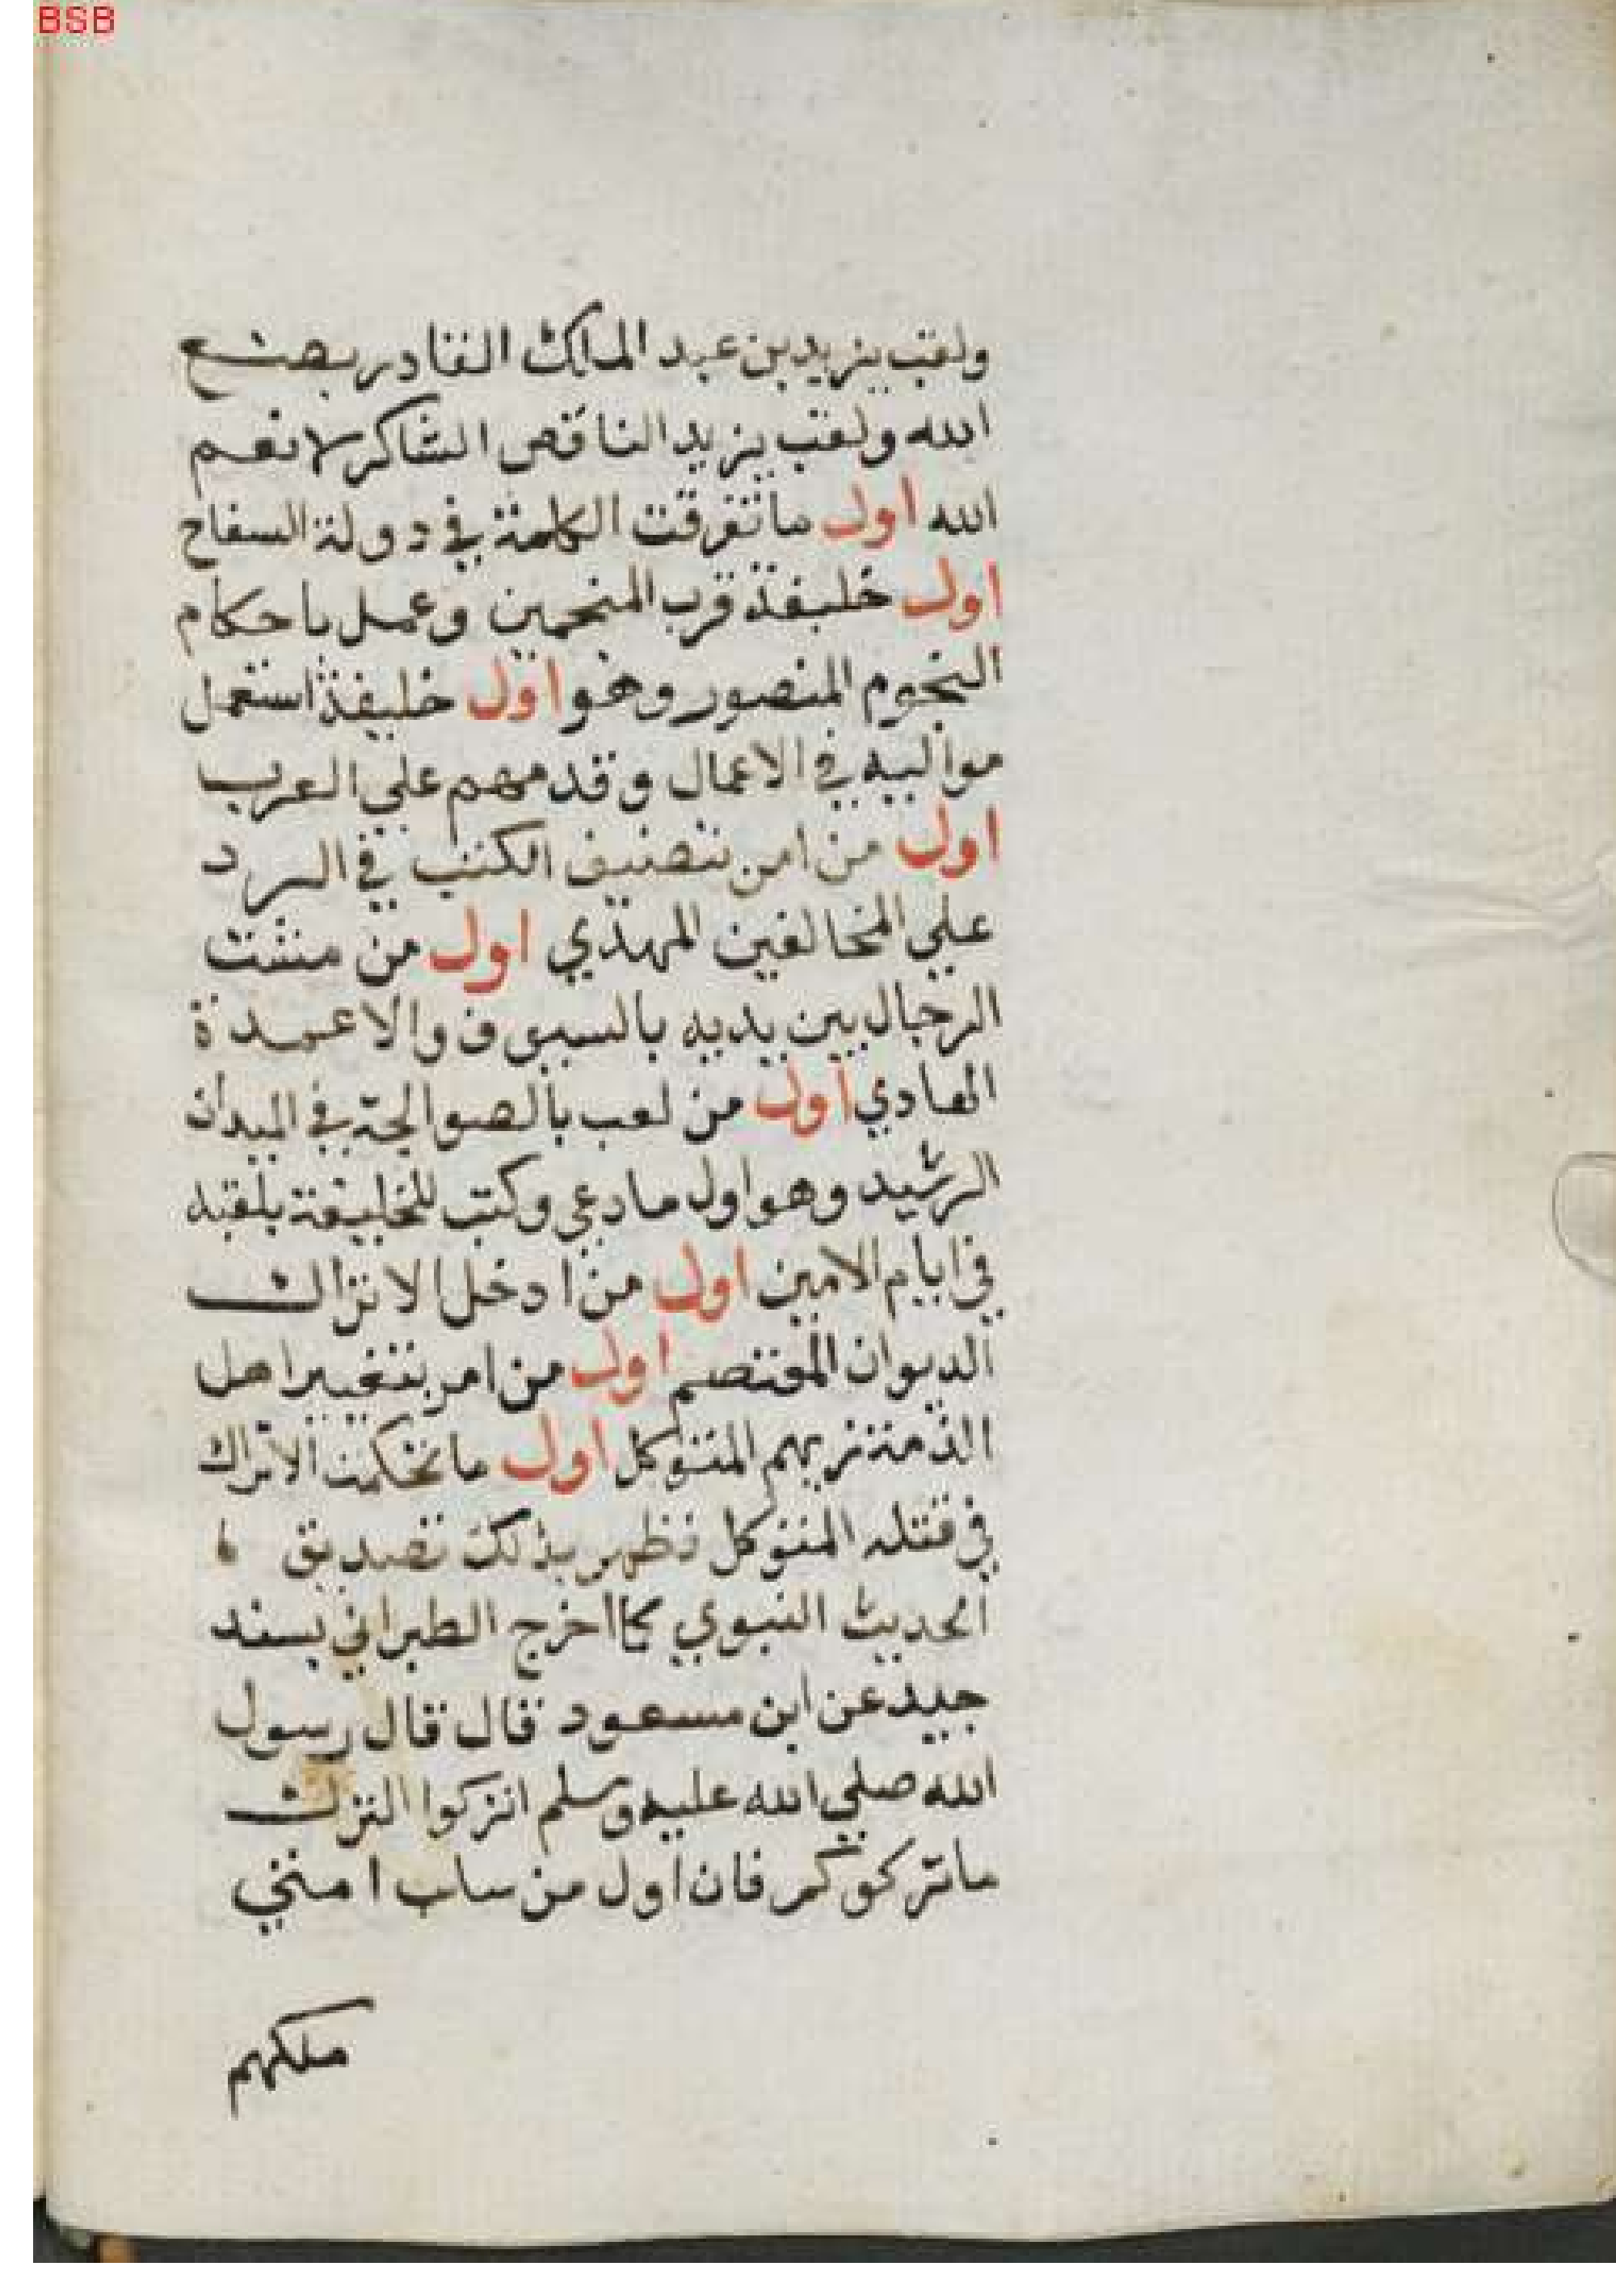 BSB
ولقب يزيد بن عبد الملك القادر بصنع
الله ولقب يزيد الناقص الشاكر لانعم
الله اول ما تفرقت الكلمة في دولة السفاح
اول خليفة قرب المنجمين وعمل باحكام
النجوم المنصور وهو اول خليفة استعمل
مواليه في الاعمال وقدمهم علي العرب
اول من امر بتصنيف الكتب في الرد
علي المخالفين المهدي اول من مشت
الرجال بين يديه بالسيوف والاعمدة
الهادي اول من لعب بالصوالجة في الميدان
الرشيد وهو اول ما دعي وكتب للخليفة بلقبه
في ايام الامين اول من ادخل الاتراك
الديوان المعتصم اول من امر بتغيير اهل
الذمة زيهم المتوكل اول ما تحكمت الاتراك
في قتله المتوكل فظهر بذلك تصديق
الحديث النبوي كما اخرج الطبراني بسند
جيد عن ابن مسعود قال قال رسول
الله صلي الله عليه وسلم اتركوا الترك
ما تركوكم فان اول من سلب امتي
ملكهم